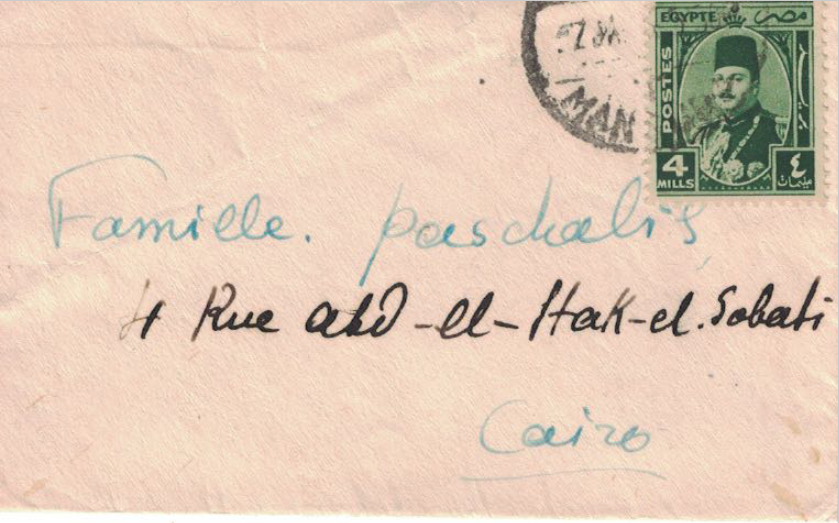 EGYPTE مصر
POSTES
4 ٤
MILLS مليمات
MAN
Famille. paschalis
4 Rue abd-el-Hak-el.Sobati
Cairo